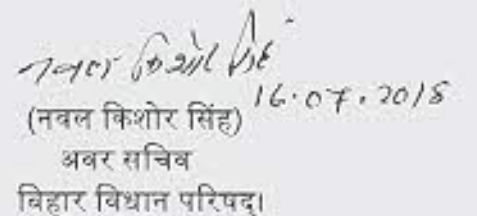 नवल किशोर सिंह
16.07.2018
(नवल किशोर सिंह)
अवर सचिव
बिहार विधान परिषद्।